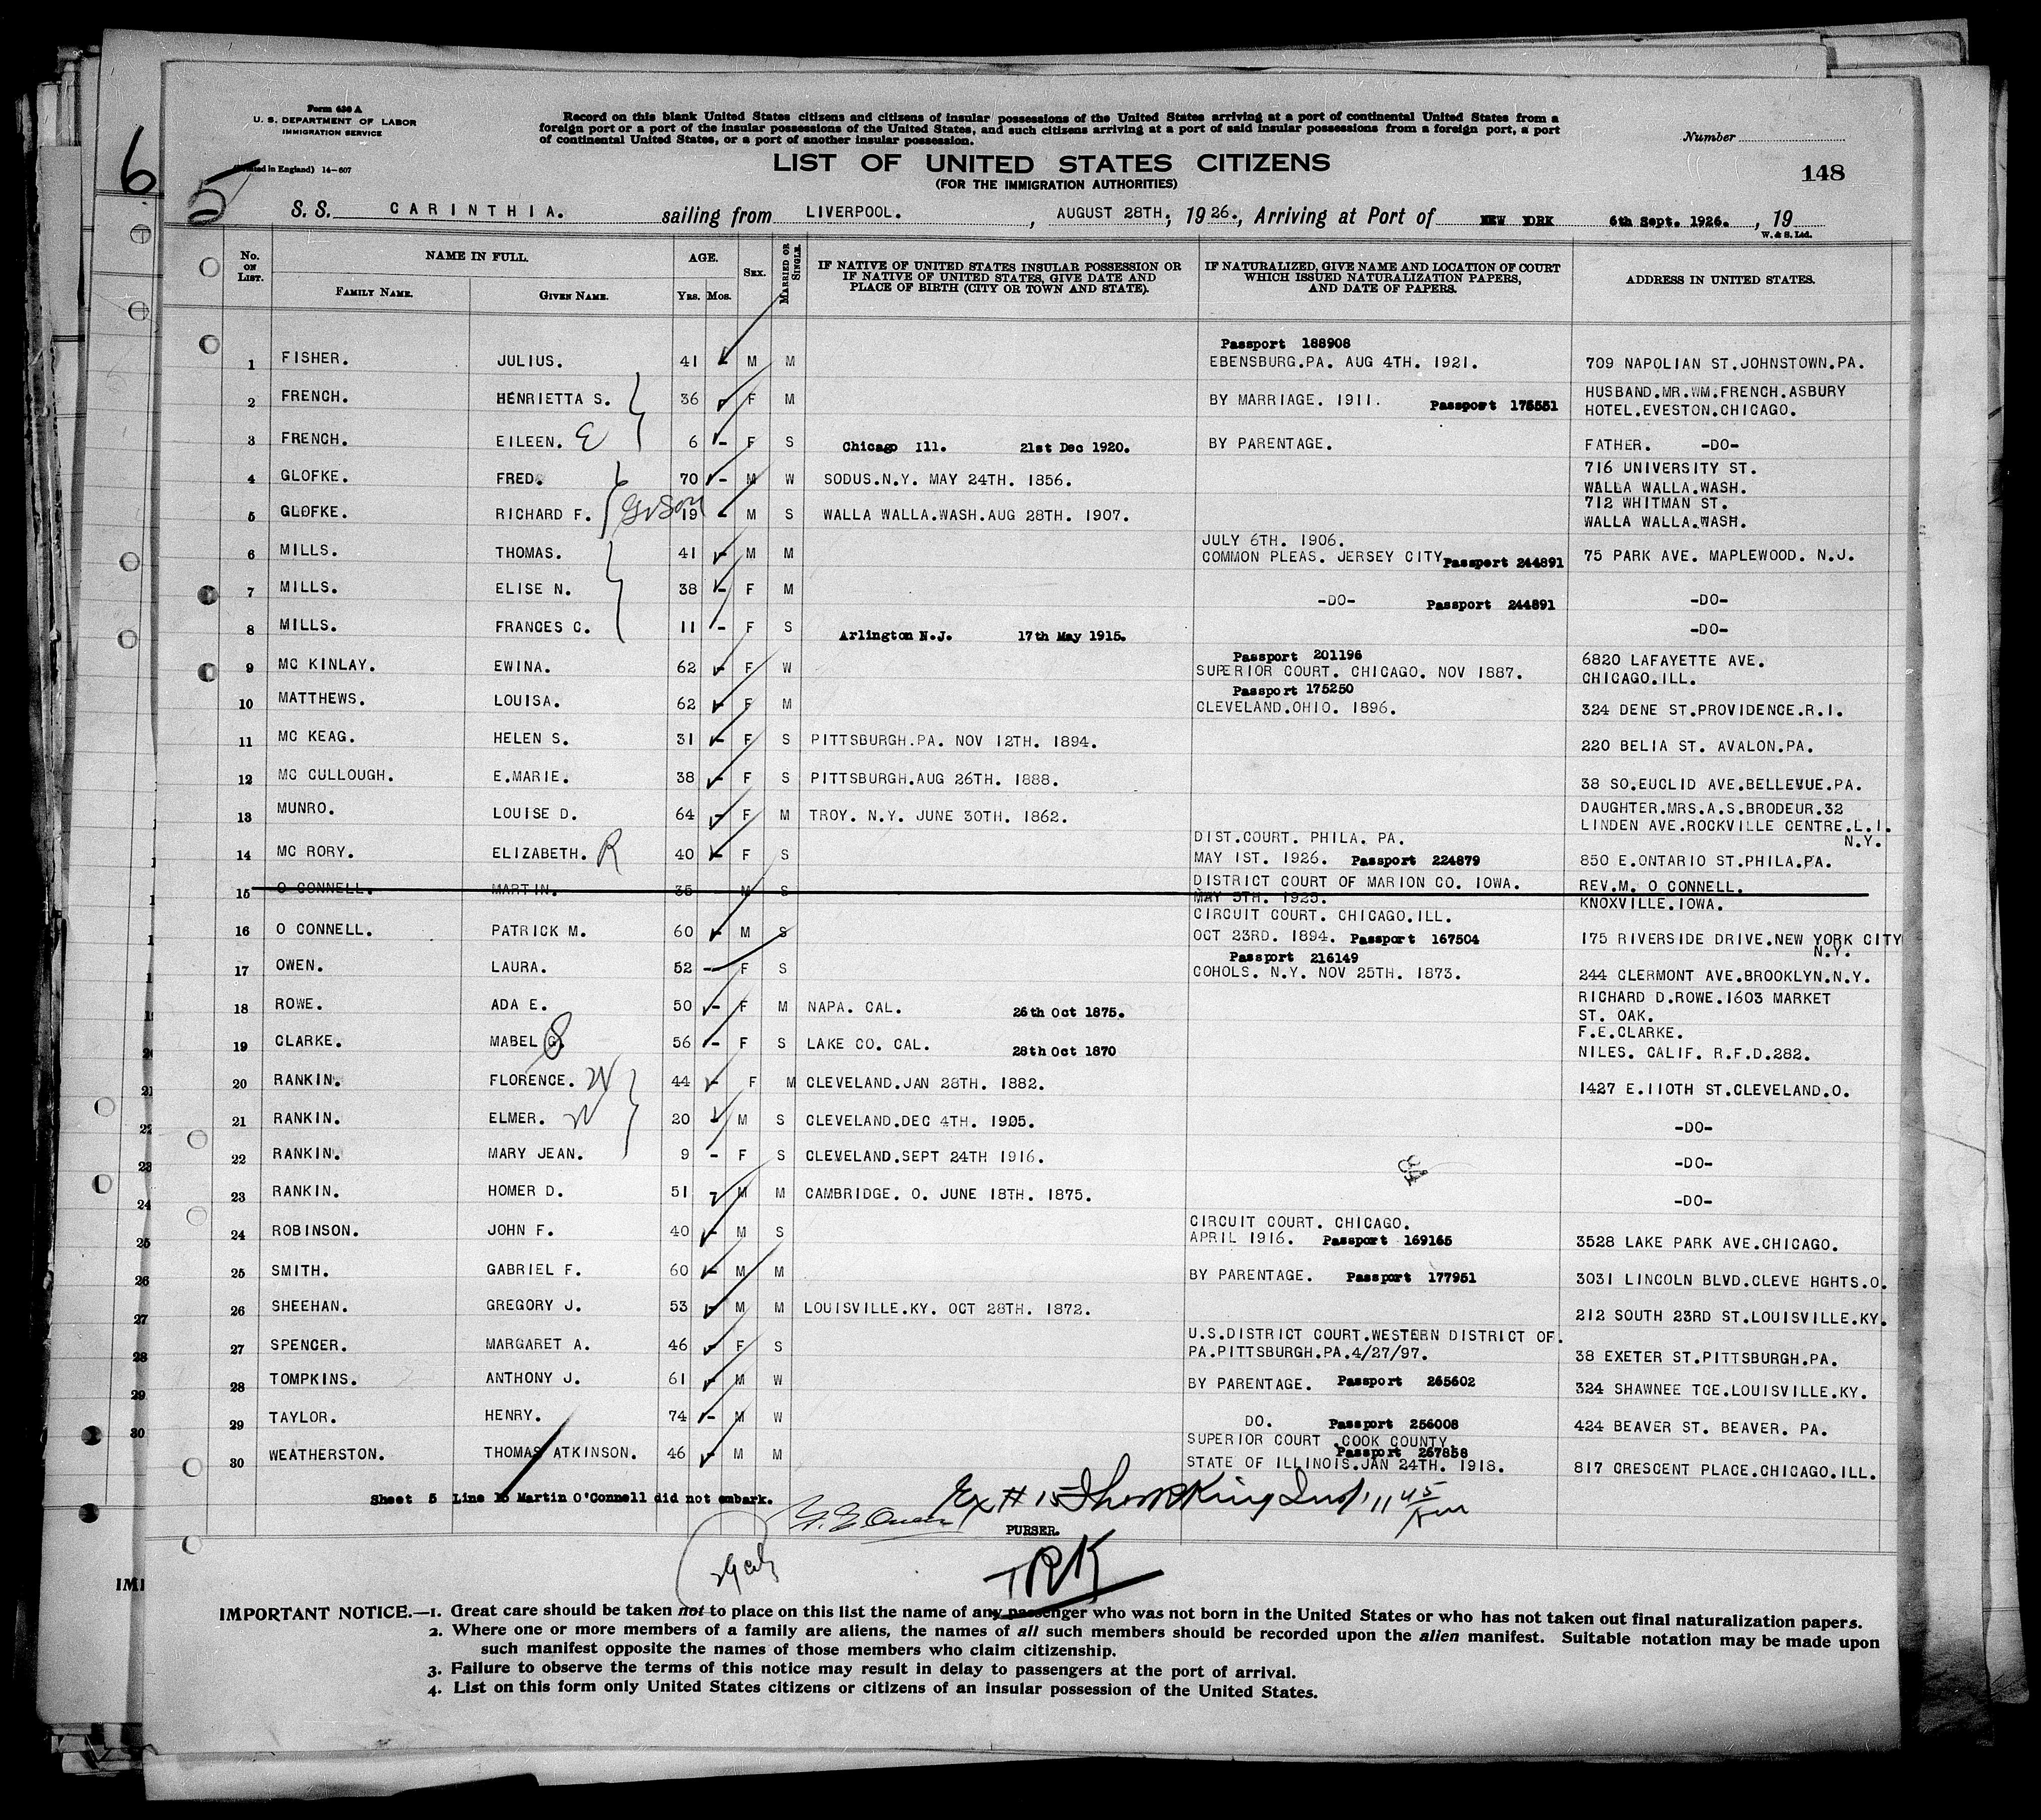 Form 630 A
U. S. DEPARTMENT OF LABOR
IMMIGRATION SERVICE
(Printed in England) 14-607
Record on this blank United States citizens and citizens of insular possessions of the United States arriving at a port of continental United States from a
foreign port or a port of the insular possessions of the United States, and such citizens arriving at a port of said insular possessions from a foreign port, a port
of continental United States, or a port of another insular possession.
Number
6
5
LIST OF UNITED STATES CITIZENS
(FOR THE IMMIGRATION AUTHORITIES)
148
S. S. CARINTHIA. sailing from LIVERPOOL. , AUGUST 28TH, 1926., Arriving at Port of NEW YORK 6th Sept. 1926. , 19
W. & S. Ltd.
No. ON LIST. NAME IN FULL. FAMILY NAME. GIVEN NAME. AGE. YRS. MOS. SEX. MARRIED OR SINGLE. IF NATIVE OF UNITED STATES INSULAR POSSESSION OR IF NATIVE OF UNITED STATES, GIVE DATE AND PLACE OF BIRTH (CITY OR TOWN AND STATE). IF NATURALIZED, GIVE NAME AND LOCATION OF COURT WHICH ISSUED NATURALIZATION PAPERS, AND DATE OF PAPERS. ADDRESS IN UNITED STATES.
Passport 188908
1 FISHER. JULIUS. 41 - M M EBENSBURG.PA. AUG 4TH. 1921. 709 NAPOLIAN ST.JOHNSTOWN.PA.
2 FRENCH. HENRIETTA S. 36 - F M BY MARRIAGE. 1911. Passport 175551 HUSBAND.MR.WM.FRENCH.ASBURY
HOTEL.EVESTON.CHICAGO.
3 FRENCH. EILEEN. E 6 - F S Chicago Ill. 21st Dec 1920. BY PARENTAGE. FATHER. -DO-
4 GLOFKE. FRED. 70 - M W SODUS.N.Y. MAY 24TH. 1856. 716 UNIVERSITY ST.
WALLA WALLA.WASH.
5 GLOFKE. RICHARD F. 19 - M S WALLA WALLA.WASH.AUG 28TH. 1907. 712 WHITMAN ST.
WALLA WALLA.WASH.
JULY 6TH. 1906.
6 MILLS. THOMAS. 41 - M M COMMON PLEAS. JERSEY CITY Passport 244891 75 PARK AVE. MAPLEWOOD. N.J.
7 MILLS. ELISE N. 38 - F M -DO- Passport 244891 -DO-
8 MILLS. FRANCES C. 11 - F S Arlington N.J. 17th May 1915. -DO-
Passport 201196
9 MC KINLAY. EWINA. 62 - F W SUPERIOR COURT. CHICAGO. NOV 1887. 6820 LAFAYETTE AVE.
CHICAGO.ILL.
Passport 175250
10 MATTHEWS. LOUISA. 62 - F M CLEVELAND.OHIO. 1896. 324 DENE ST.PROVIDENCE.R.I.
11 MC KEAG. HELEN S. 31 - F S PITTSBURGH.PA. NOV 12TH. 1894. 220 BELIA ST. AVALON.PA.
12 MC CULLOUGH. E.MARIE. 38 - F S PITTSBURGH.AUG 26TH. 1888. 38 SO.EUCLID AVE.BELLEVUE.PA.
13 MUNRO. LOUISE D. 64 - F M TROY. N.Y. JUNE 30TH. 1862. DAUGHTER.MRS.A.S.BRODEUR.32
LINDEN AVE.ROCKVILLE CENTRE.L.I.
N.Y.
DIST.COURT. PHILA. PA.
14 MC RORY. ELIZABETH. R 40 - F S MAY 1ST. 1926. Passport 224879 850 E.ONTARIO ST.PHILA.PA.
15 O CONNELL. MARTIN. 35 M S DISTRICT COURT OF MARION CO. IOWA. REV.M. O CONNELL.
MAY 5TH. 1925. KNOXVILLE.IOWA.
CIRCUIT COURT. CHICAGO.ILL.
16 O CONNELL. PATRICK M. 60 - M S OCT 23RD. 1894. Passport 167504 175 RIVERSIDE DRIVE.NEW YORK CITY
N.Y.
Passport 216149
17 OWEN. LAURA. 52 - F S COHOLS. N.Y. NOV 25TH. 1873. 244 CLERMONT AVE.BROOKLYN.N.Y.
18 ROWE. ADA E. 50 - F M NAPA. CAL. 26th Oct 1875. RICHARD D.ROWE.1603 MARKET
ST. OAK.
19 CLARKE. MABEL 56 - F S LAKE CO. CAL. 28th Oct 1870 F.E.CLARKE.
NILES. CALIF. R.F.D.282.
20 RANKIN. FLORENCE. W 44 - F M CLEVELAND.JAN 28TH. 1882. 1427 E.110TH ST.CLEVELAND.O.
21 RANKIN. ELMER. W 20 - M S CLEVELAND.DEC 4TH. 1905. -DO-
22 RANKIN. MARY JEAN. 9 - F S CLEVELAND.SEPT 24TH 1916. -DO-
23 RANKIN. HOMER D. 51 - M M CAMBRIDGE. O. JUNE 18TH. 1875. -DO-
CIRCUIT COURT. CHICAGO.
24 ROBINSON. JOHN F. 40 - M S APRIL 1916. Passport 169165 3528 LAKE PARK AVE.CHICAGO.
25 SMITH. GABRIEL F. 60 - M M BY PARENTAGE. Passport 177951 3031 LINCOLN BLVD.CLEVE HGHTS.O.
26 SHEEHAN. GREGORY J. 53 - M M LOUISVILLE.KY. OCT 28TH. 1872. 212 SOUTH 23RD ST.LOUISVILLE.KY.
U.S.DISTRICT COURT.WESTERN DISTRICT OF.
27 SPENCER. MARGARET A. 46 - F S PA.PITTSBURGH.PA.4/27/97. 38 EXETER ST.PITTSBURGH.PA.
28 TOMPKINS. ANTHONY J. 61 - M W BY PARENTAGE. Passport 265602 324 SHAWNEE TCE.LOUISVILLE.KY.
29 TAYLOR. HENRY. 74 - M W DO. Passport 256008 424 BEAVER ST. BEAVER. PA.
SUPERIOR COURT .COOK COUNTY.
30 WEATHERSTON. THOMAS ATKINSON. 46 - M M Passport 267858
STATE OF ILLINOIS.JAN 24TH. 1918. 817 CRESCENT PLACE.CHICAGO.ILL.
Sheet 5 Line 15 Martin O'Connell did not embark.
Ex # 15
PURSER.
TRK
IMPORTANT NOTICE.—1. Great care should be taken not to place on this list the name of any passenger who was not born in the United States or who has not taken out final naturalization papers.
2. Where one or more members of a family are aliens, the names of all such members should be recorded upon the alien manifest. Suitable notation may be made upon
such manifest opposite the names of those members who claim citizenship.
3. Failure to observe the terms of this notice may result in delay to passengers at the port of arrival.
4. List on this form only United States citizens or citizens of an insular possession of the United States.